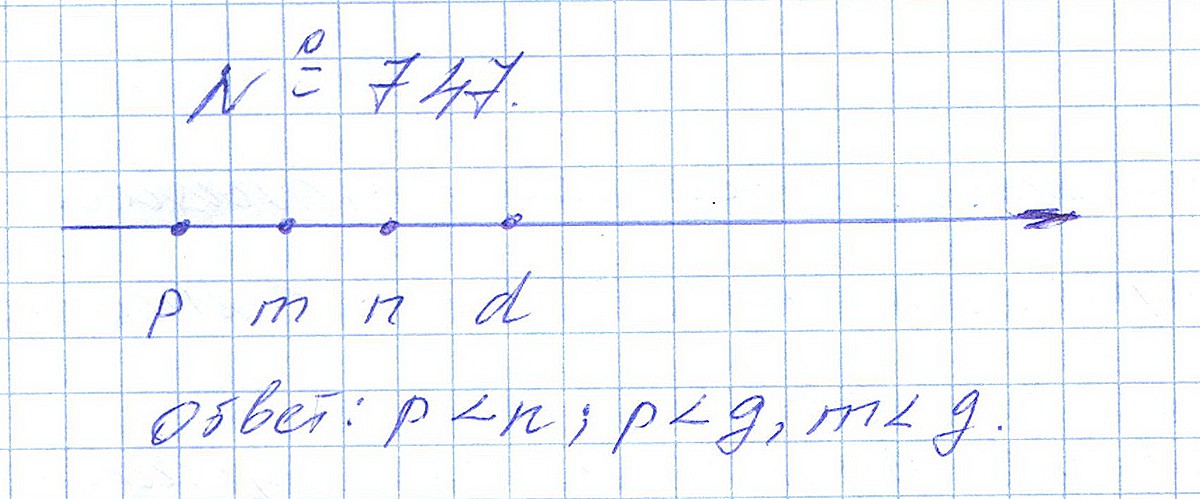 № 747.
p m n d
ответ: p < n; p < g, m < g.